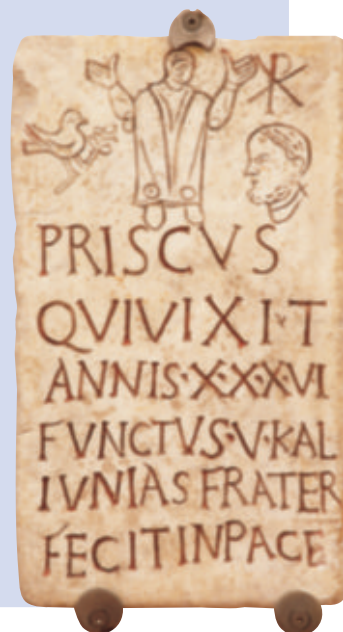 PRISCVS
QVIVIXIT
ANNIS·X·X·X·VI
FVNCTVS·V·KAL
IVNIAS FRATER
FECITINPACE